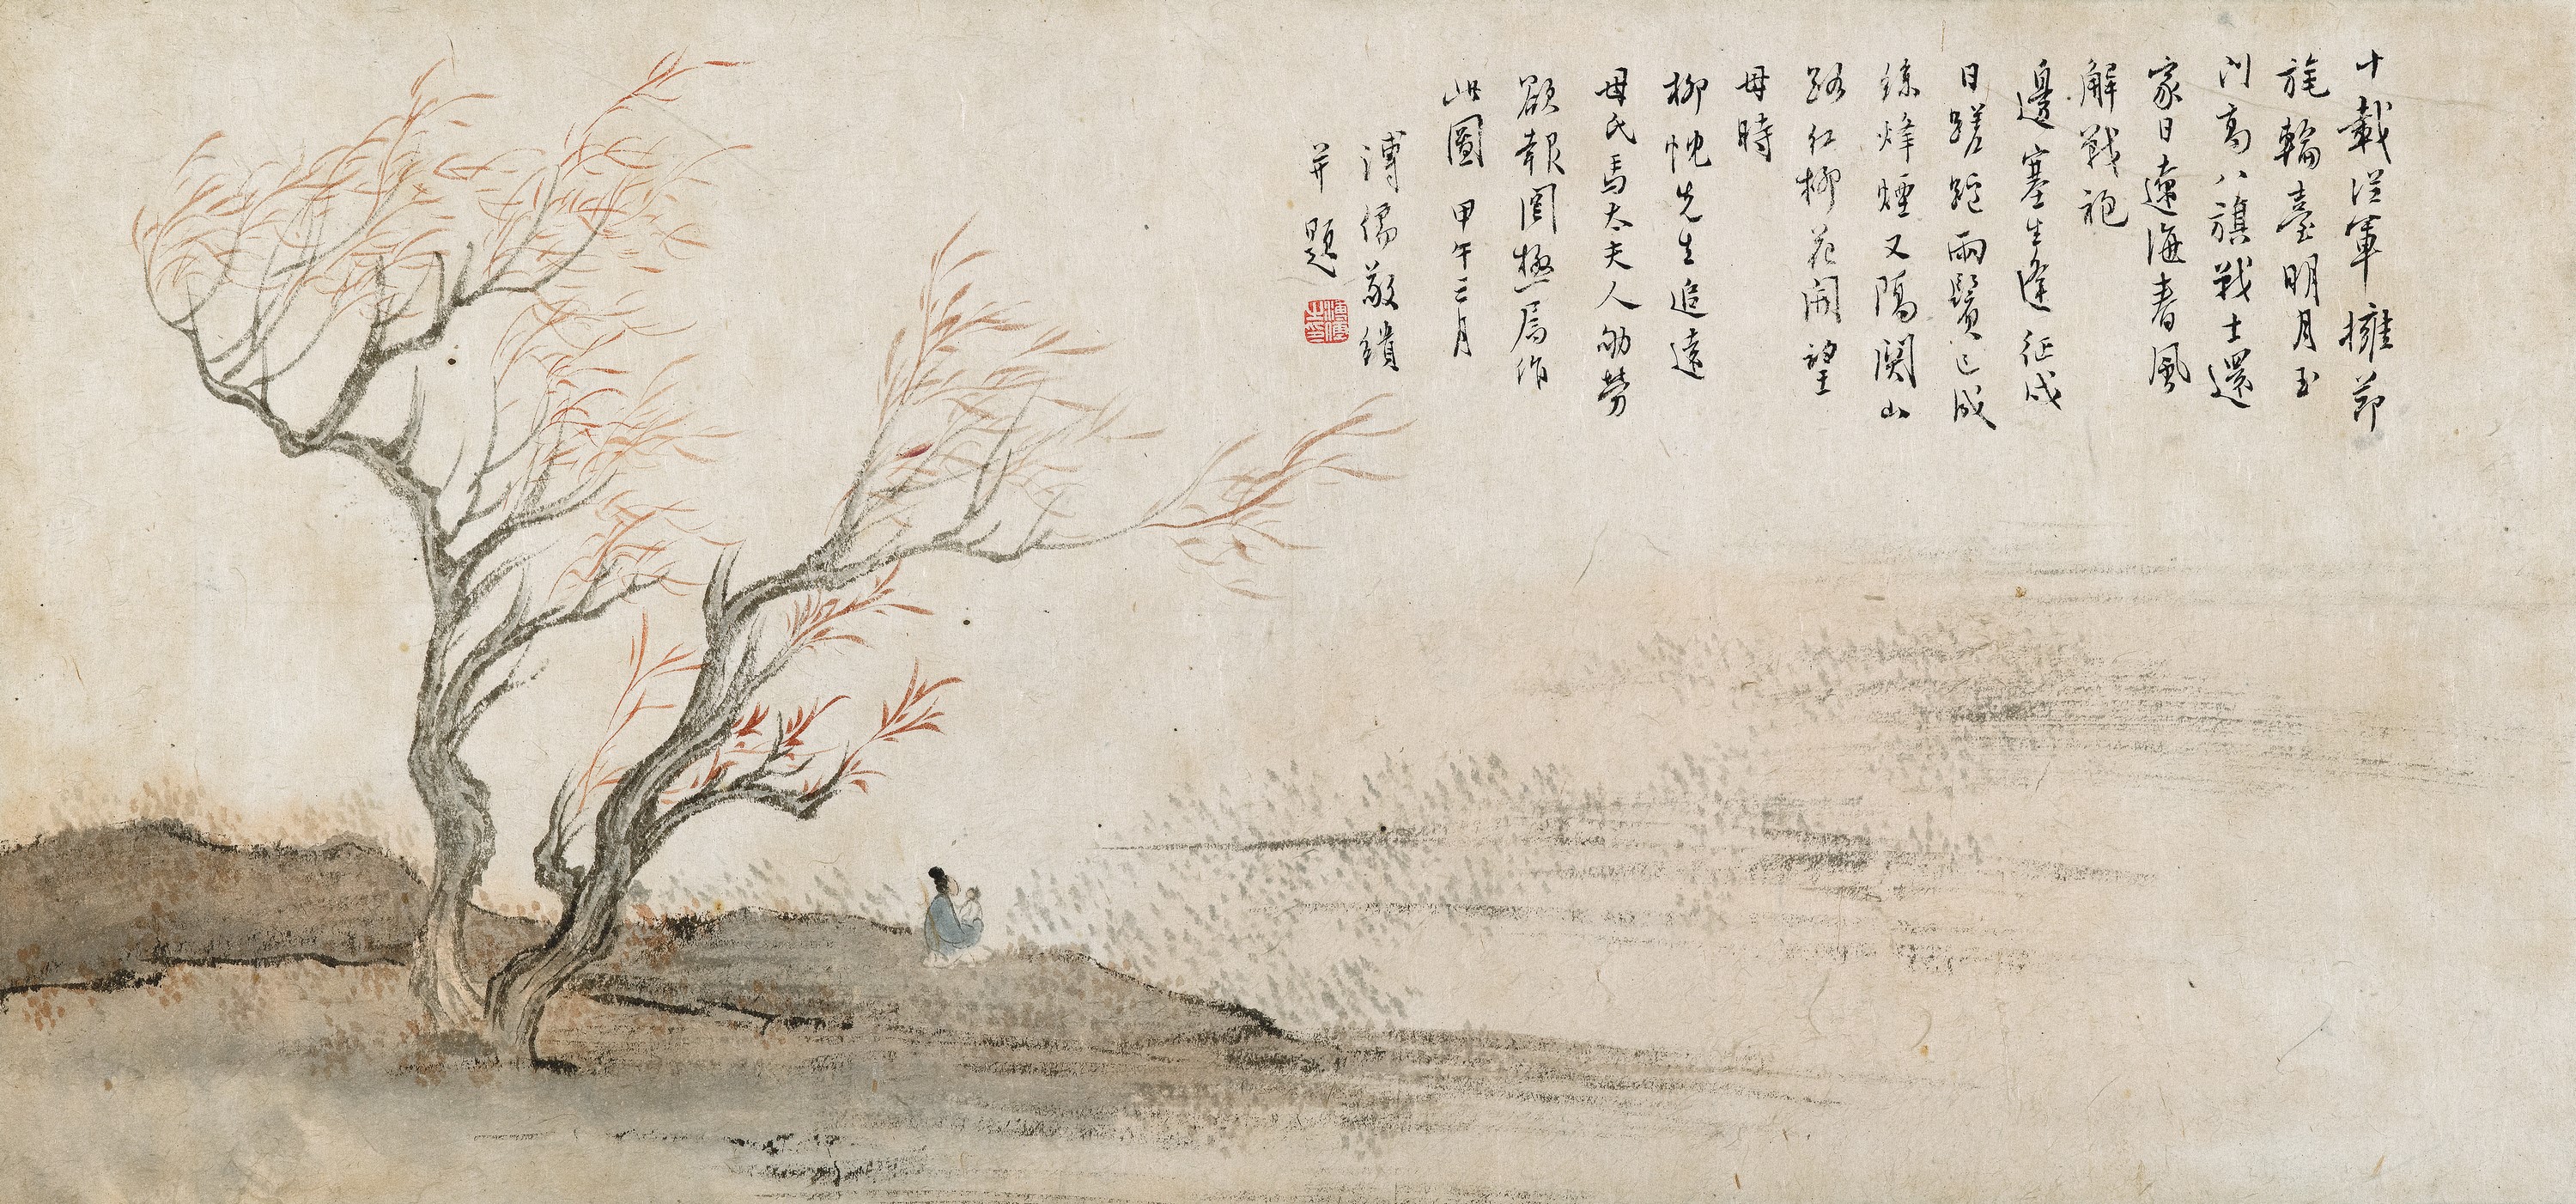 十載從軍擁節
旄輪臺明月玉
門高八旗戰士還
家日遼海春風
解戰袍
邊塞生逢征戍
日蹉跎兩鬢已成
絲烽煙又隔關山
路紅柳花開望
母時
柳忱先生追遠
母氏馬太夫人劬勞
欲報罔極屬作
此圖甲午三月
溥儒敬繢
并題